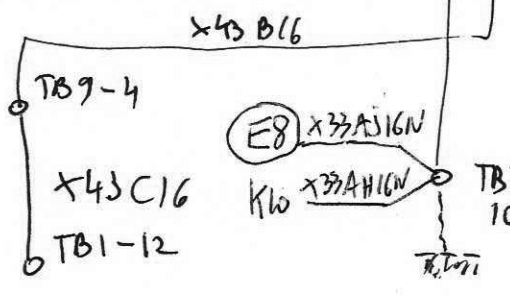 X43 B16
TB9-4
E8 X33AJ16N
X43C16
K10 X33AH16N
TB
10
TB1-12